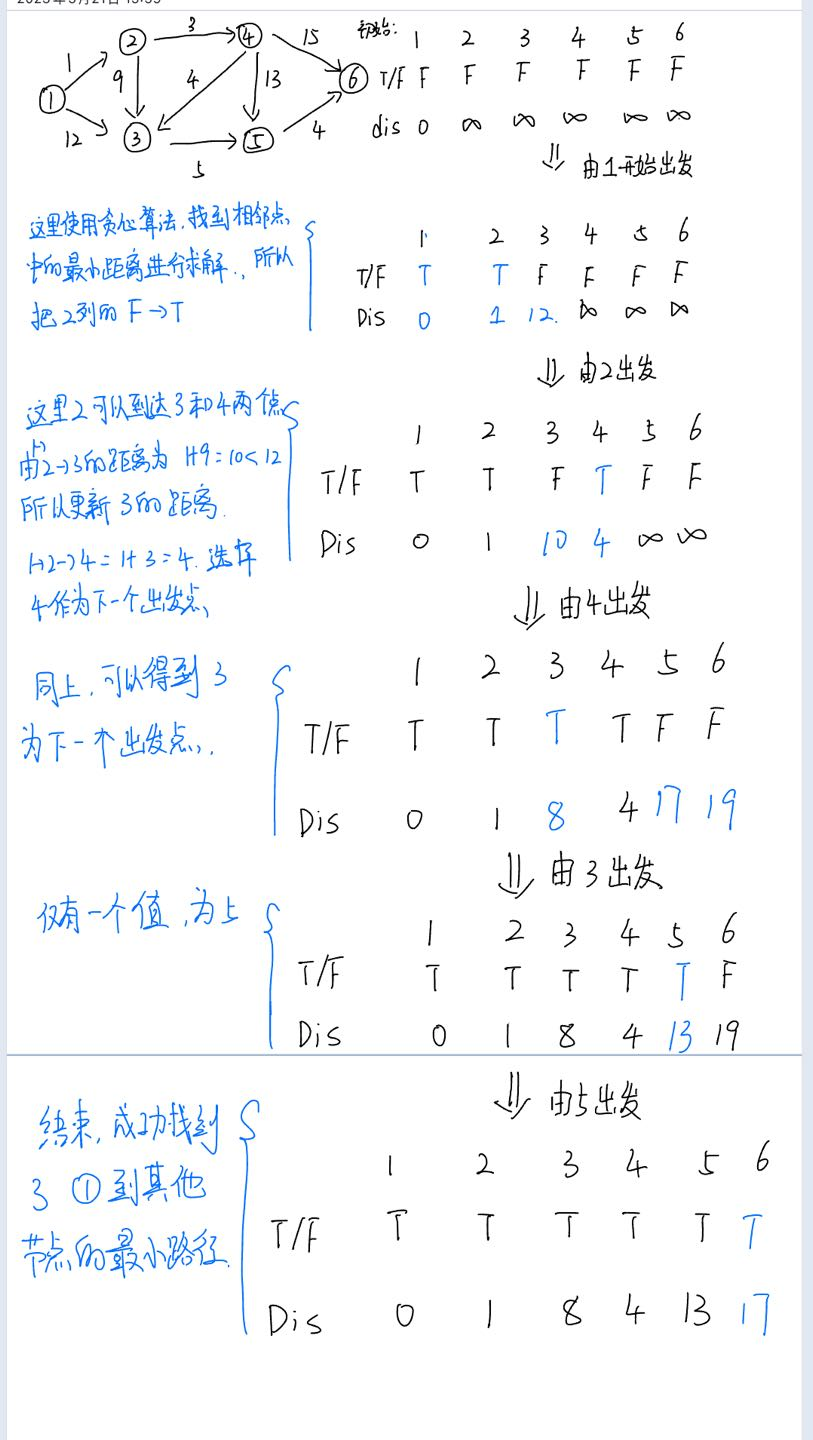 3 15 初始: 1 2 3 4 5 6
② ④
1 9 4 13 ⑥ T/F F F F F F F
①
12 ③ ⑤ 4 dis 0 ∞ ∞ ∞ ∞ ∞
5
⇓ 由1开始出发
这里使用贪心算法,找到相邻点
中的最小距离进行求解.,所以
把2列的 F→T
1 2 3 4 5 6
T/F T T F F F F
Dis 0 1 12. ∞ ∞ ∞
⇓ 由2出发
这里2可以到达3和4两个点
由1→2→3的距离为 1+9=10<12
所以更新3的距离.
1→2→4=1+3=4. 选择
4作为下一个出发点,
1 2 3 4 5 6
T/F T T F T F F
Dis 0 1 10 4 ∞ ∞
⇓ 由4出发
同上,可以得到3
为下一个出发点,.
1 2 3 4 5 6
T/F T T T T F F
Dis 0 1 8 4 17 19
⇓ 由3出发
仅有一个值,为5
1 2 3 4 5 6
T/F T T T T T F
Dis 0 1 8 4 13 19
⇓ 由5出发
结束,成功找到
3 ①到其他
节点的最小路径.
1 2 3 4 5 6
T/F T T T T T T
Dis 0 1 8 4 13 17